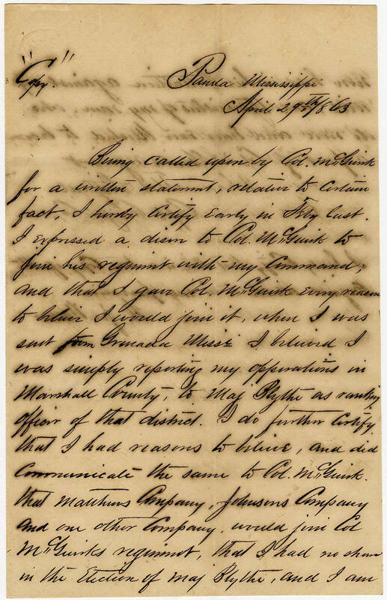 "Copy"
Panola Mississippi
April 29th/63
Being called upon by Col. McGuirk
for a written statement, relative to certain
fact, I hereby certify Early in Feby last.
I expressed a desire to Col. McGuirk to
join his regiment with my command,
and that I gave Col. McGuirk every reason
to believe I would join it, when I was
sent from Grenada Misse I believed I
was simply reporting my opperations in
Marshall County, to Maj Blythe as ranking
officer of that district. I do further certify,
that I had reasons to believe, and did
communicate the same to Col. McGuirk.
that Matthews Company, Johnsons Company
and one other Company would join Col
McGuirks regiment, that I had no share
in the Election of Maj Blythe, and I am